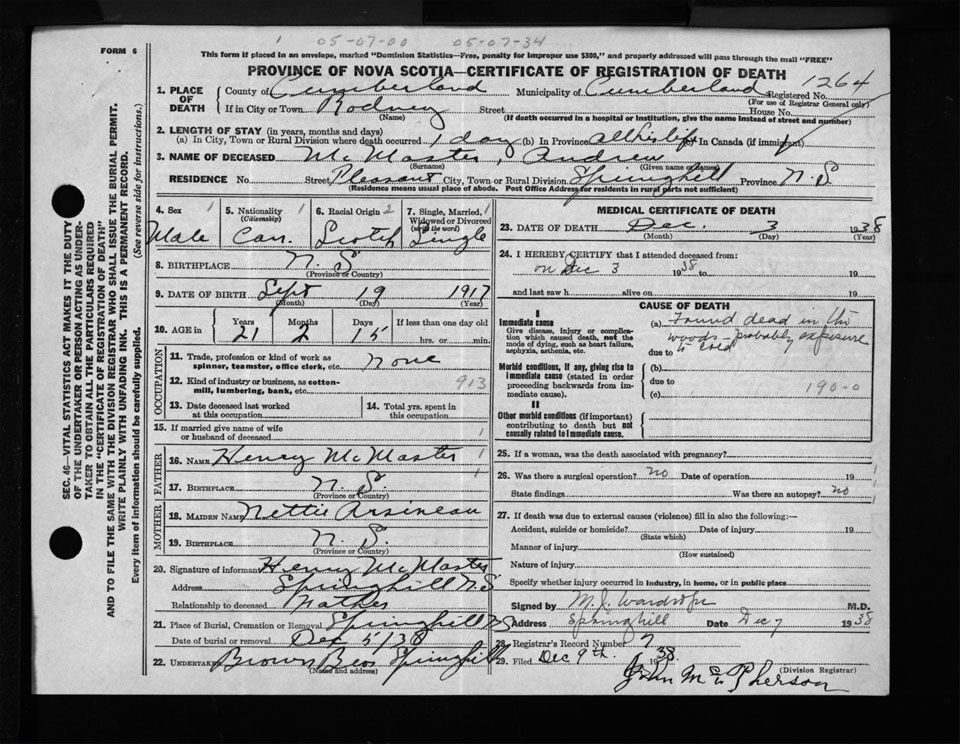 05-07-00 05-07-34
FORM 6
This form if placed in an envelope, marked "Dominion Statistics—Free, penalty for improper use $300," and properly addressed will pass through the mail "FREE"
PROVINCE OF NOVA SCOTIA—CERTIFICATE OF REGISTRATION OF DEATH
1264
1. PLACE OF DEATH County of Cumberland Municipality of Cumberland Registered No.
(For use of Registrar General only)
If in City or Town Rodney Street House No.
(Name) (If death occurred in a hospital or institution, give the name instead of street and number)
2. LENGTH OF STAY (in years, months and days)
(a) In City, Town or Rural Division where death occurred 1 day (b) In Province all his life (c) In Canada (if immigrant)
3. NAME OF DECEASED McMaster, Andrew
(Surname) (Given name or names)
RESIDENCE No. Street Pleasant City, Town or Rural Division Springhill Province N. S.
(Residence means usual place of abode. Post Office Address for residents in rural parts not sufficient)
4. Sex 1 5. Nationality 1 6. Racial Origin 2 7. Single, Married, 1
(Citizenship) Widowed or Divorced
(write the word)
Male Can. Scotch Single
8. BIRTHPLACE N. S.
(Province or Country)
9. DATE OF BIRTH Sept 19 1917
(Month) (Day) (Year)
10. AGE in Years Months Days If less than one day old
21 2 15 hrs. or min.
OCCUPATION
11. Trade, profession or kind of work as
spinner, teamster, office clerk, etc. None
12. Kind of industry or business, as cotton- 913
mill, lumbering, bank, etc.
13. Date deceased last worked
at this occupation
14. Total yrs. spent in
this occupation
15. If married give name of wife 1
or husband of deceased
FATHER
16. NAME Henry McMaster 1
17. BIRTHPLACE N. S. 1
(Province or Country)
MOTHER
18. MAIDEN NAME Nettie Arsineau
19. BIRTHPLACE N. S.
(Province or Country)
20. Signature of informant Henry McMaster
Address Springhill NS
Relationship to deceased Father
21. Place of Burial, Cremation or Removal Springhill NS
Date of burial or removal Dec 5/38
22. UNDERTAKER Brown Bros Springhill
(Name and address)
MEDICAL CERTIFICATE OF DEATH
23. DATE OF DEATH Dec. 3 1938
(Month) (Day) (Year)
24. I HEREBY CERTIFY that I attended deceased from:
on Dec 3 1938 to 19
and last saw h alive on 19
CAUSE OF DEATH
I
Immediate cause
Give disease, injury or complication which caused death, not the mode of dying, such as heart failure, asphyxia, asthenia, etc.
(a) Found dead in the
woods - probably exposure
due to to cold
Morbid conditions, if any, giving rise to immediate cause (stated in order proceeding backwards from immediate cause).
(b)
due to 190-0
(c)
II
Other morbid conditions (if important) contributing to death but not causally related to immediate cause.
25. If a woman, was the death associated with pregnancy?
26. Was there a surgical operation? no Date of operation 19
State findings Was there an autopsy? no
27. If death was due to external causes (violence) fill in also the following:—
Accident, suicide or homicide? Date of injury 19
(State which)
Manner of injury
(How sustained)
Nature of injury
Specify whether injury occurred in industry, in home, or in public place
Signed by M. J. Wardrope M.D.
Address Springhill Date Dec 7 1938
28. Registrar's Record Number 7
29. Filed Dec 9th 1938
John McPherson
(Division Registrar)
SEC. 46—VITAL STATISTICS ACT MAKES IT THE DUTY
OF THE UNDERTAKER OR PERSON ACTING AS UNDER-
TAKER TO OBTAIN ALL THE PARTICULARS REQUIRED
IN THE "CERTIFICATE OF REGISTRATION OF DEATH"
AND TO FILE THE SAME WITH THE DIVISION REGISTRAR WHO SHALL ISSUE THE BURIAL PERMIT.
WRITE PLAINLY WITH UNFADING INK. THIS IS A PERMANENT RECORD.
Every item of information should be carefully supplied. (See reverse side for instructions.)